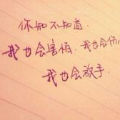 你知不知道.
我也会害怕.我也会伤
我也会放手.